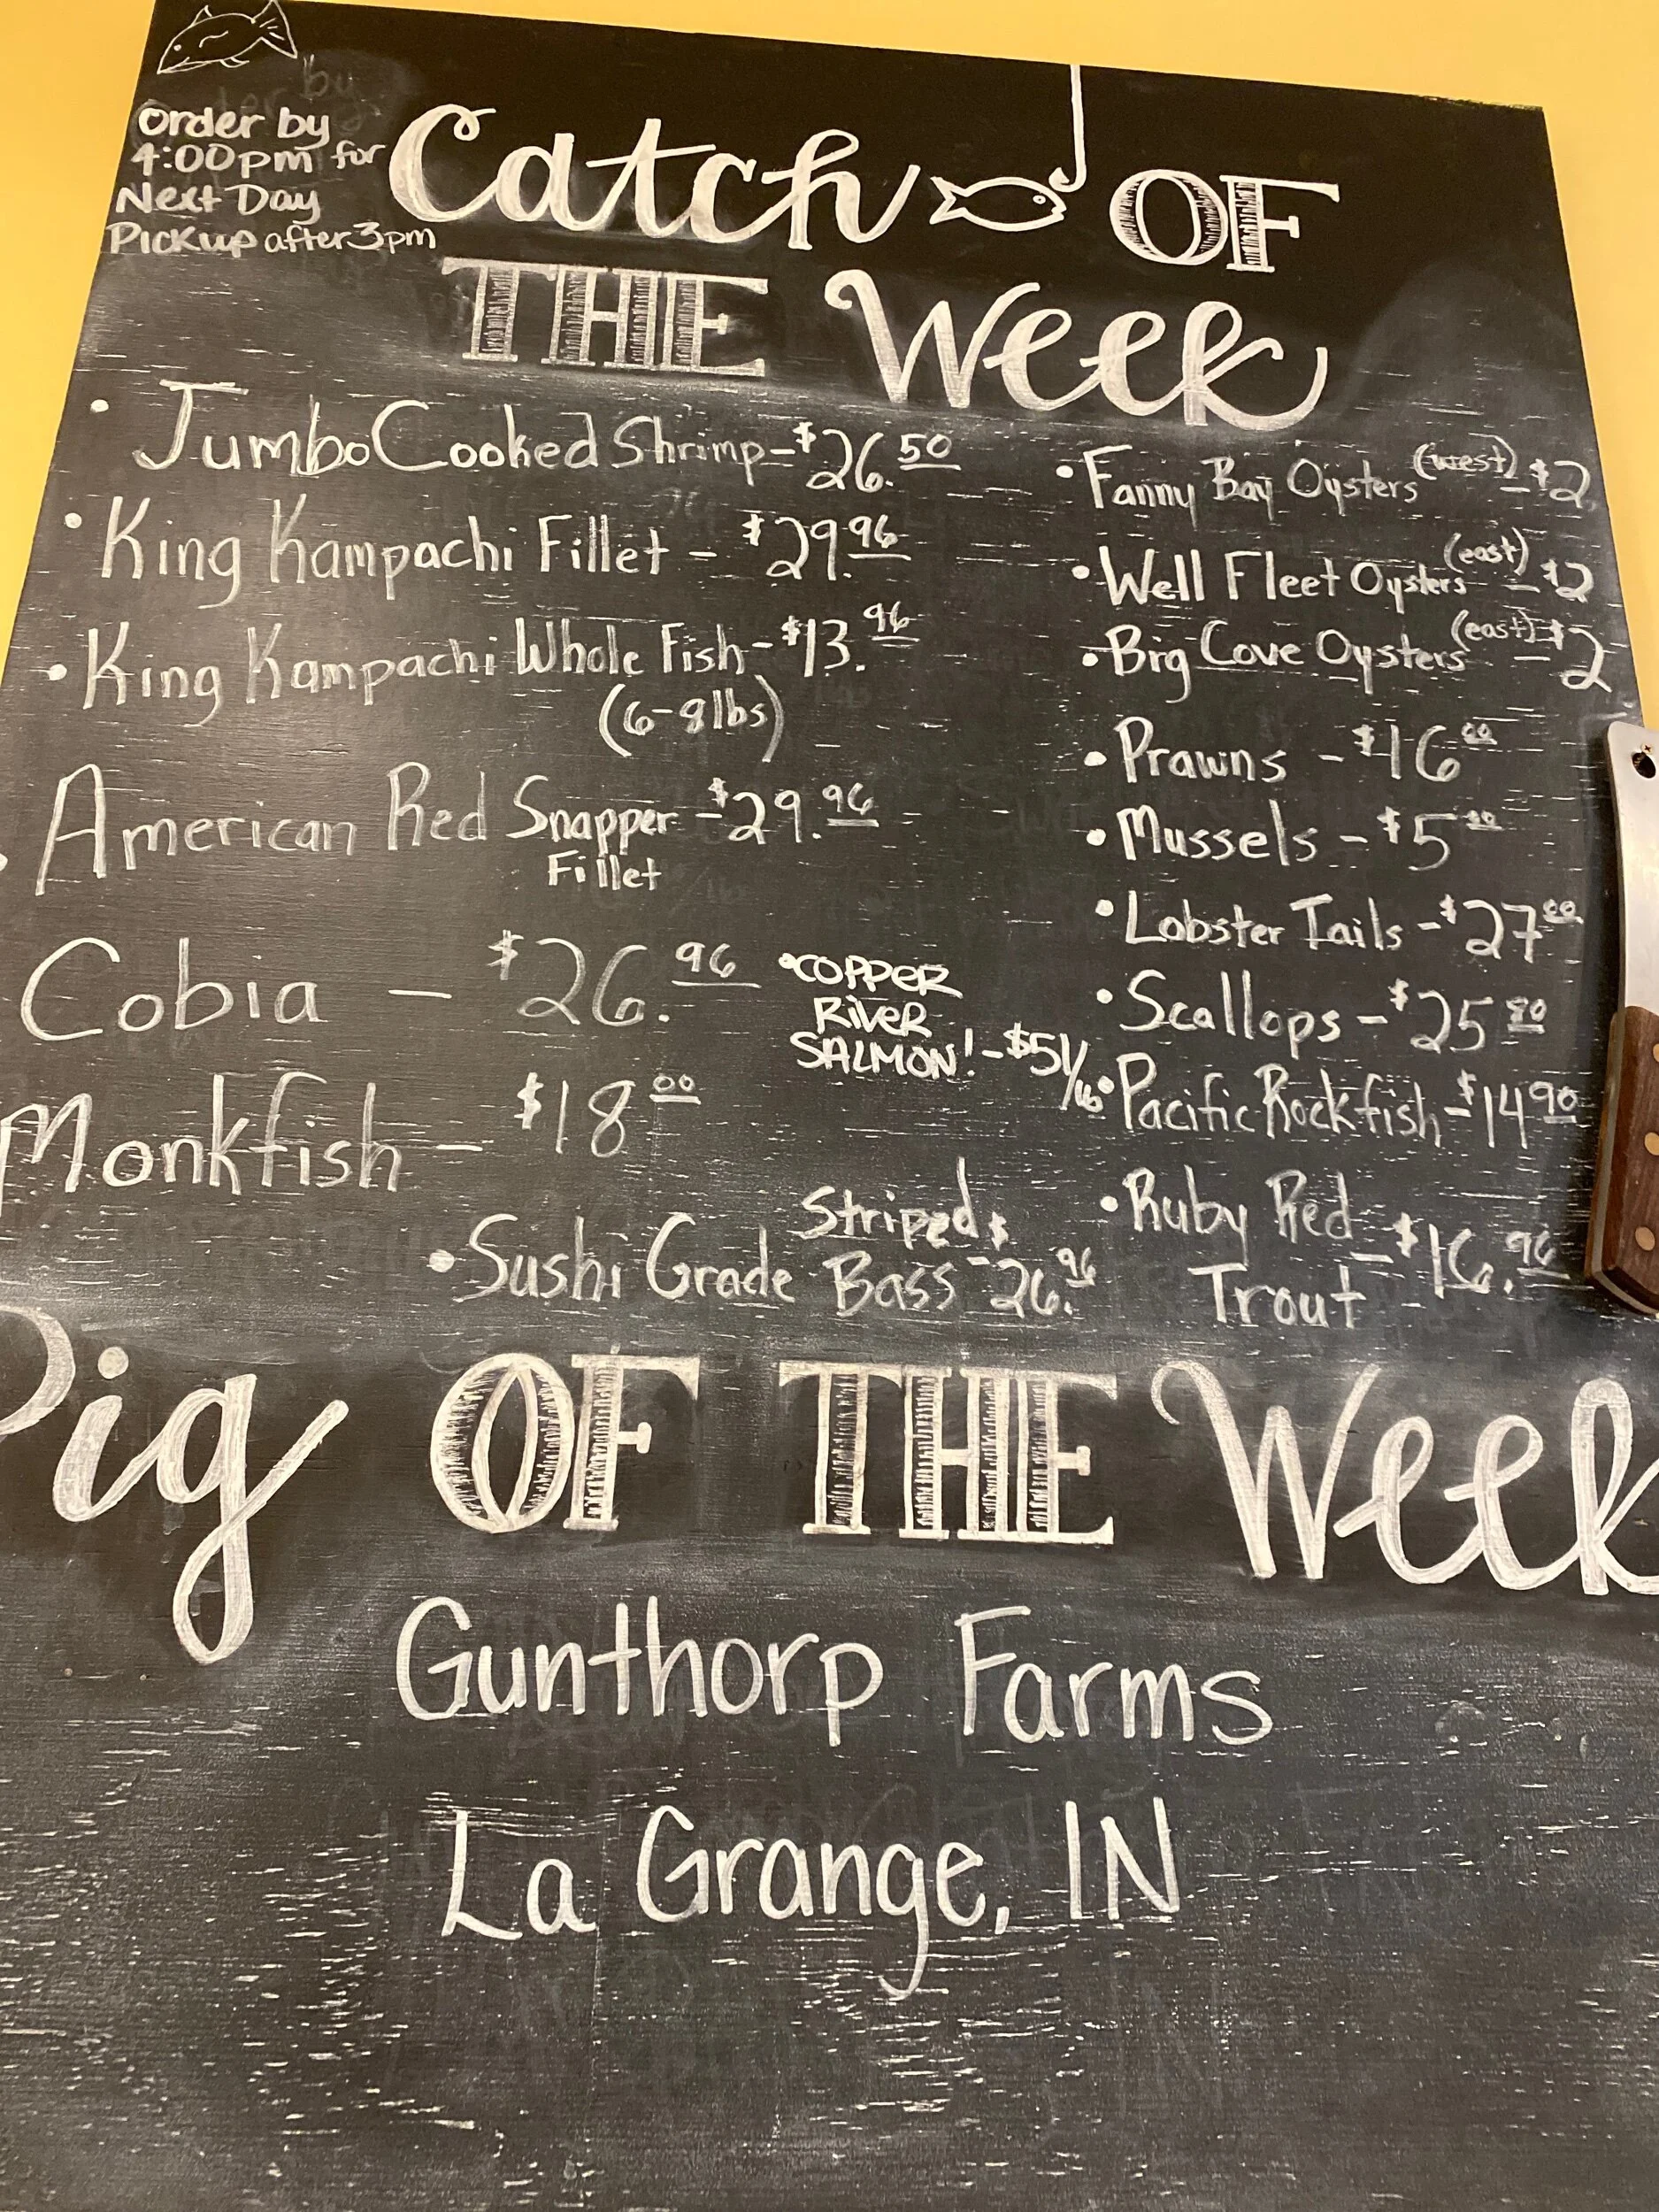 Order by
4:00pm for
Next Day
Pickup after 3pm
Catch OF
THE Week
• Jumbo Cooked Shrimp - $26.50
• King Kampachi Fillet - $29.96
• King Kampachi Whole Fish - $13.96
(6-8lbs)
• American Red Snapper - $29.96
Fillet
Cobia - $26.96
Monkfish - $18 00
• COPPER
RIVER
SALMON! - $51/lb
• Sushi Grade Striped
Bass - $26.96
• Fanny Bay Oysters (west) - $2
• Well Fleet Oysters (east) - $2
• Big Cove Oysters (east) - $2
• Prawns - $16 00
• Mussels - $5 00
• Lobster Tails - $27 00
• Scallops - $25 80
• Pacific Rockfish - $14 90
• Ruby Red
Trout - $16.96
Pig OF THE Week
Gunthorp Farms
La Grange, IN